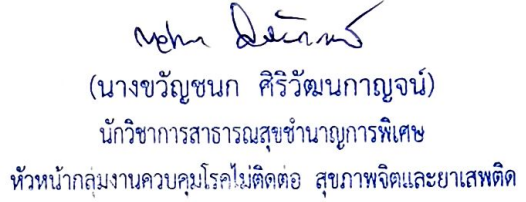 (นางขวัญชนก ศิริวัฒนกาญจน์)
นักวิชาการสาธารณสุขชำนาญการพิเศษ
หัวหน้ากลุ่มงานควบคุมโรคไม่ติดต่อ สุขภาพจิตและยาเสพติด